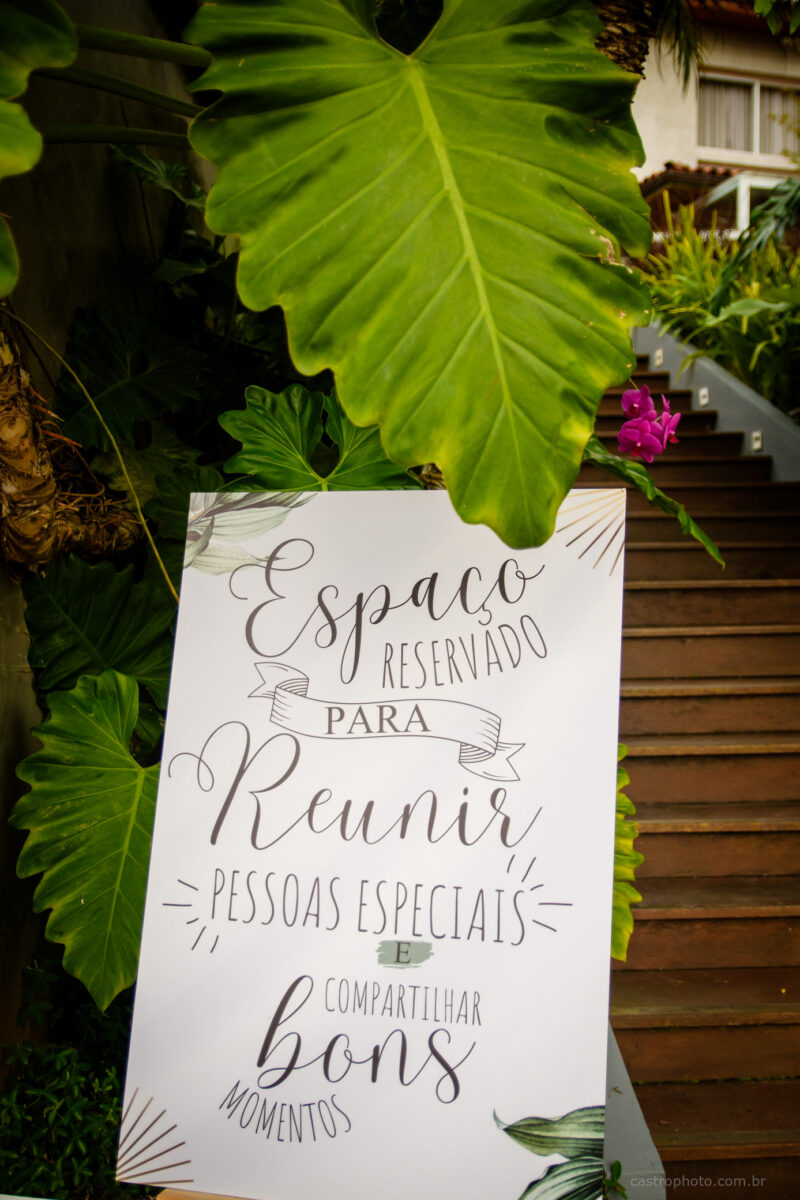 Espaço
RESERVADO
PARA
Reunir
PESSOAS ESPECIAIS
E
COMPARTILHAR
bons
MOMENTOS
castrophoto.com.br